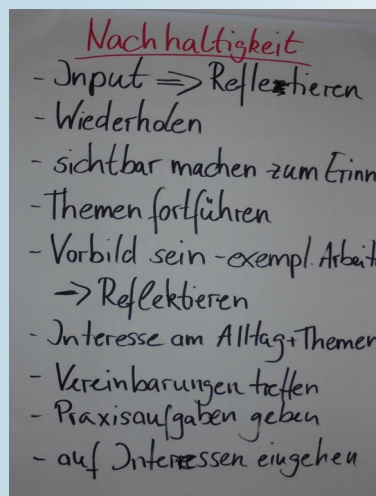 Nachhaltigkeit
- Input => Reflektieren
- Wiederholen
- sichtbar machen zum Erinn
- Themen fortführen
- Vorbild sein - exempl. Arbeit
-> Reflektieren
- Interesse am Alltag + Themen
- Vereinbarungen treffen
- Praxisaufgaben geben
- auf Interessen eingehen